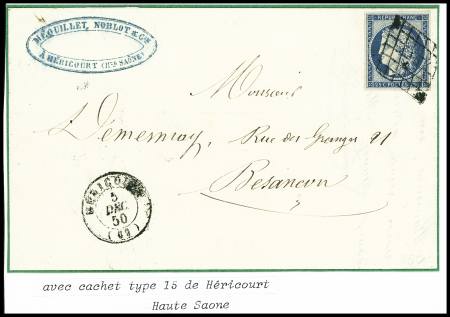 MÉQUILLET, NOBLOT & Cie
A HÉRICOURT (Hte SAÔNE)
REPUB. FRANC.
Monsieur
Demesmay, Rue des Granges 21
Besancon
HÉRICOURT
5
DEC.
50
(69)
avec cachet type 15 de Héricourt
Haute Saone